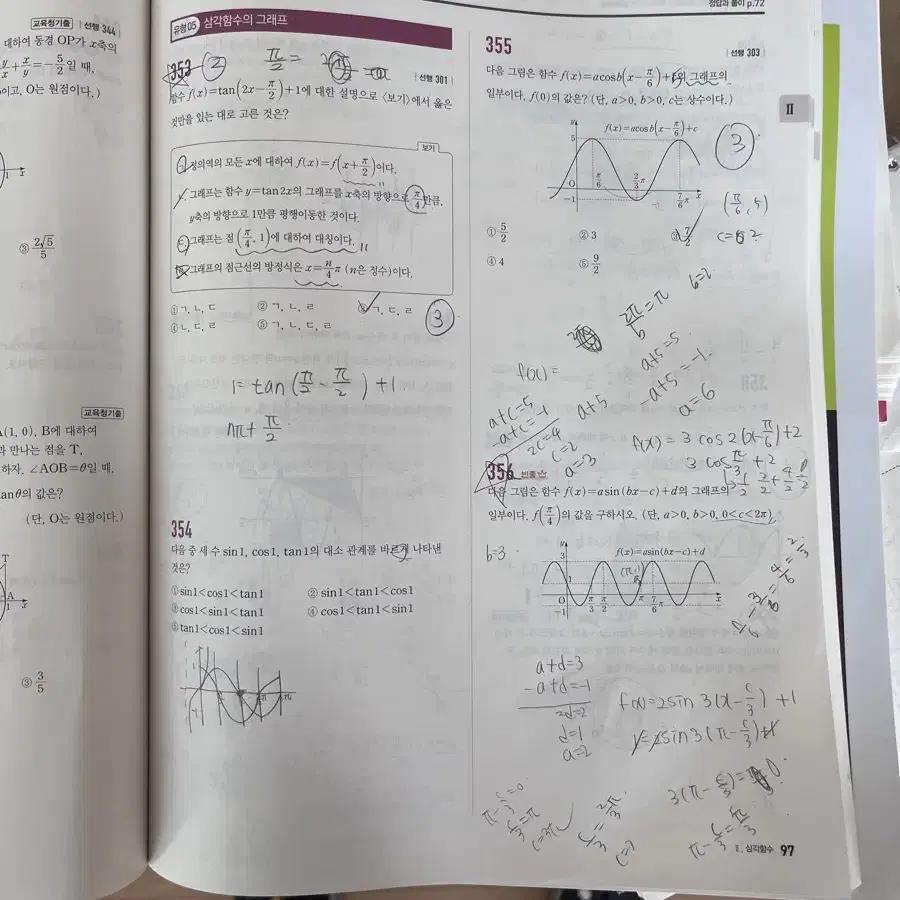 교육청기출 | 선행 344 |
대하여 동경 OP가 x축의
y/x + x/y = -5/2 일 때,
이고, O는 원점이다.)
③ 2√5/5
교육청기출
A(1, 0), B에 대하여
과 만나는 점을 T,
하자. ∠AOB=θ일 때,
tanθ의 값은?
(단, O는 원점이다.)
T
A
1 x
③ 3/5
유형 05 삼각함수의 그래프
353 | 선행 301 |
함수 f(x)=tan(2x-π/2)+1에 대한 설명으로 <보기>에서 옳은
것만을 있는 대로 고른 것은?
보기
ㄱ. 정의역의 모든 x에 대하여 f(x)=f(x+π/2)이다.
ㄴ. 그래프는 함수 y=tan 2x의 그래프를 x축의 방향으로 π/4만큼,
y축의 방향으로 1만큼 평행이동한 것이다.
ㄷ. 그래프는 점 (π/4, 1)에 대하여 대칭이다.
ㄹ. 그래프의 점근선의 방정식은 x=n/4 π (n은 정수)이다.
① ㄱ, ㄴ, ㄷ ② ㄱ, ㄴ, ㄹ ③ ㄱ, ㄷ, ㄹ
④ ㄴ, ㄷ, ㄹ ⑤ ㄱ, ㄴ, ㄷ, ㄹ
③
1= tan(π/2 - π/2) +1
nπ+ π/2
354
다음 중 세 수 sin 1, cos 1, tan 1의 대소 관계를 바르게 나타낸
것은?
① sin 1<cos 1<tan 1 ② sin 1<tan 1<cos 1
③ cos 1<sin 1<tan 1 ④ cos 1<tan 1<sin 1
⑤ tan 1<cos 1<sin 1
정답과 풀이 p.72
355 | 선행 303 |
다음 그림은 함수 f(x)=a cos b(x-π/6)+c의 그래프의
일부이다. f(0)의 값은? (단, a>0, b>0, c는 상수이다.)
y f(x)=a cos b(x-π/6)+c
5
O π/6 2/3 π x
-1 7/6 π
③
(π/6, 5)
① 5/2 ② 3 ③ 7/2
④ 4 ⑤ 9/2
2π/b =π b=2
f(x) =
a+5=5
-a+5=-1
a=6
a+5
a+c=5
-a+c=-1
2c=4
c=2
a=3
f(x)= 3 cos 2(x-π/6)+2
3 cos π/3 +2
356 빈출☆
다음 그림은 함수 f(x)=a sin(bx-c)+d의 그래프의
일부이다. f(π/4)의 값을 구하시오. (단, a>0, b>0, 0<c<2π)
b=3
y f(x)=a sin(bx-c)+d
3
1
O π/3 π/2 π 7/6 π x
-1
a+d=3
-a+d=-1
2d=2
d=1
a=2
f(x)=2sin 3(x-c/3) +1
π-c/3=0
c/3=π
c=3π
c/3= 2π/3
π-c/3=π/3
Ⅱ
Ⅱ. 삼각함수 97